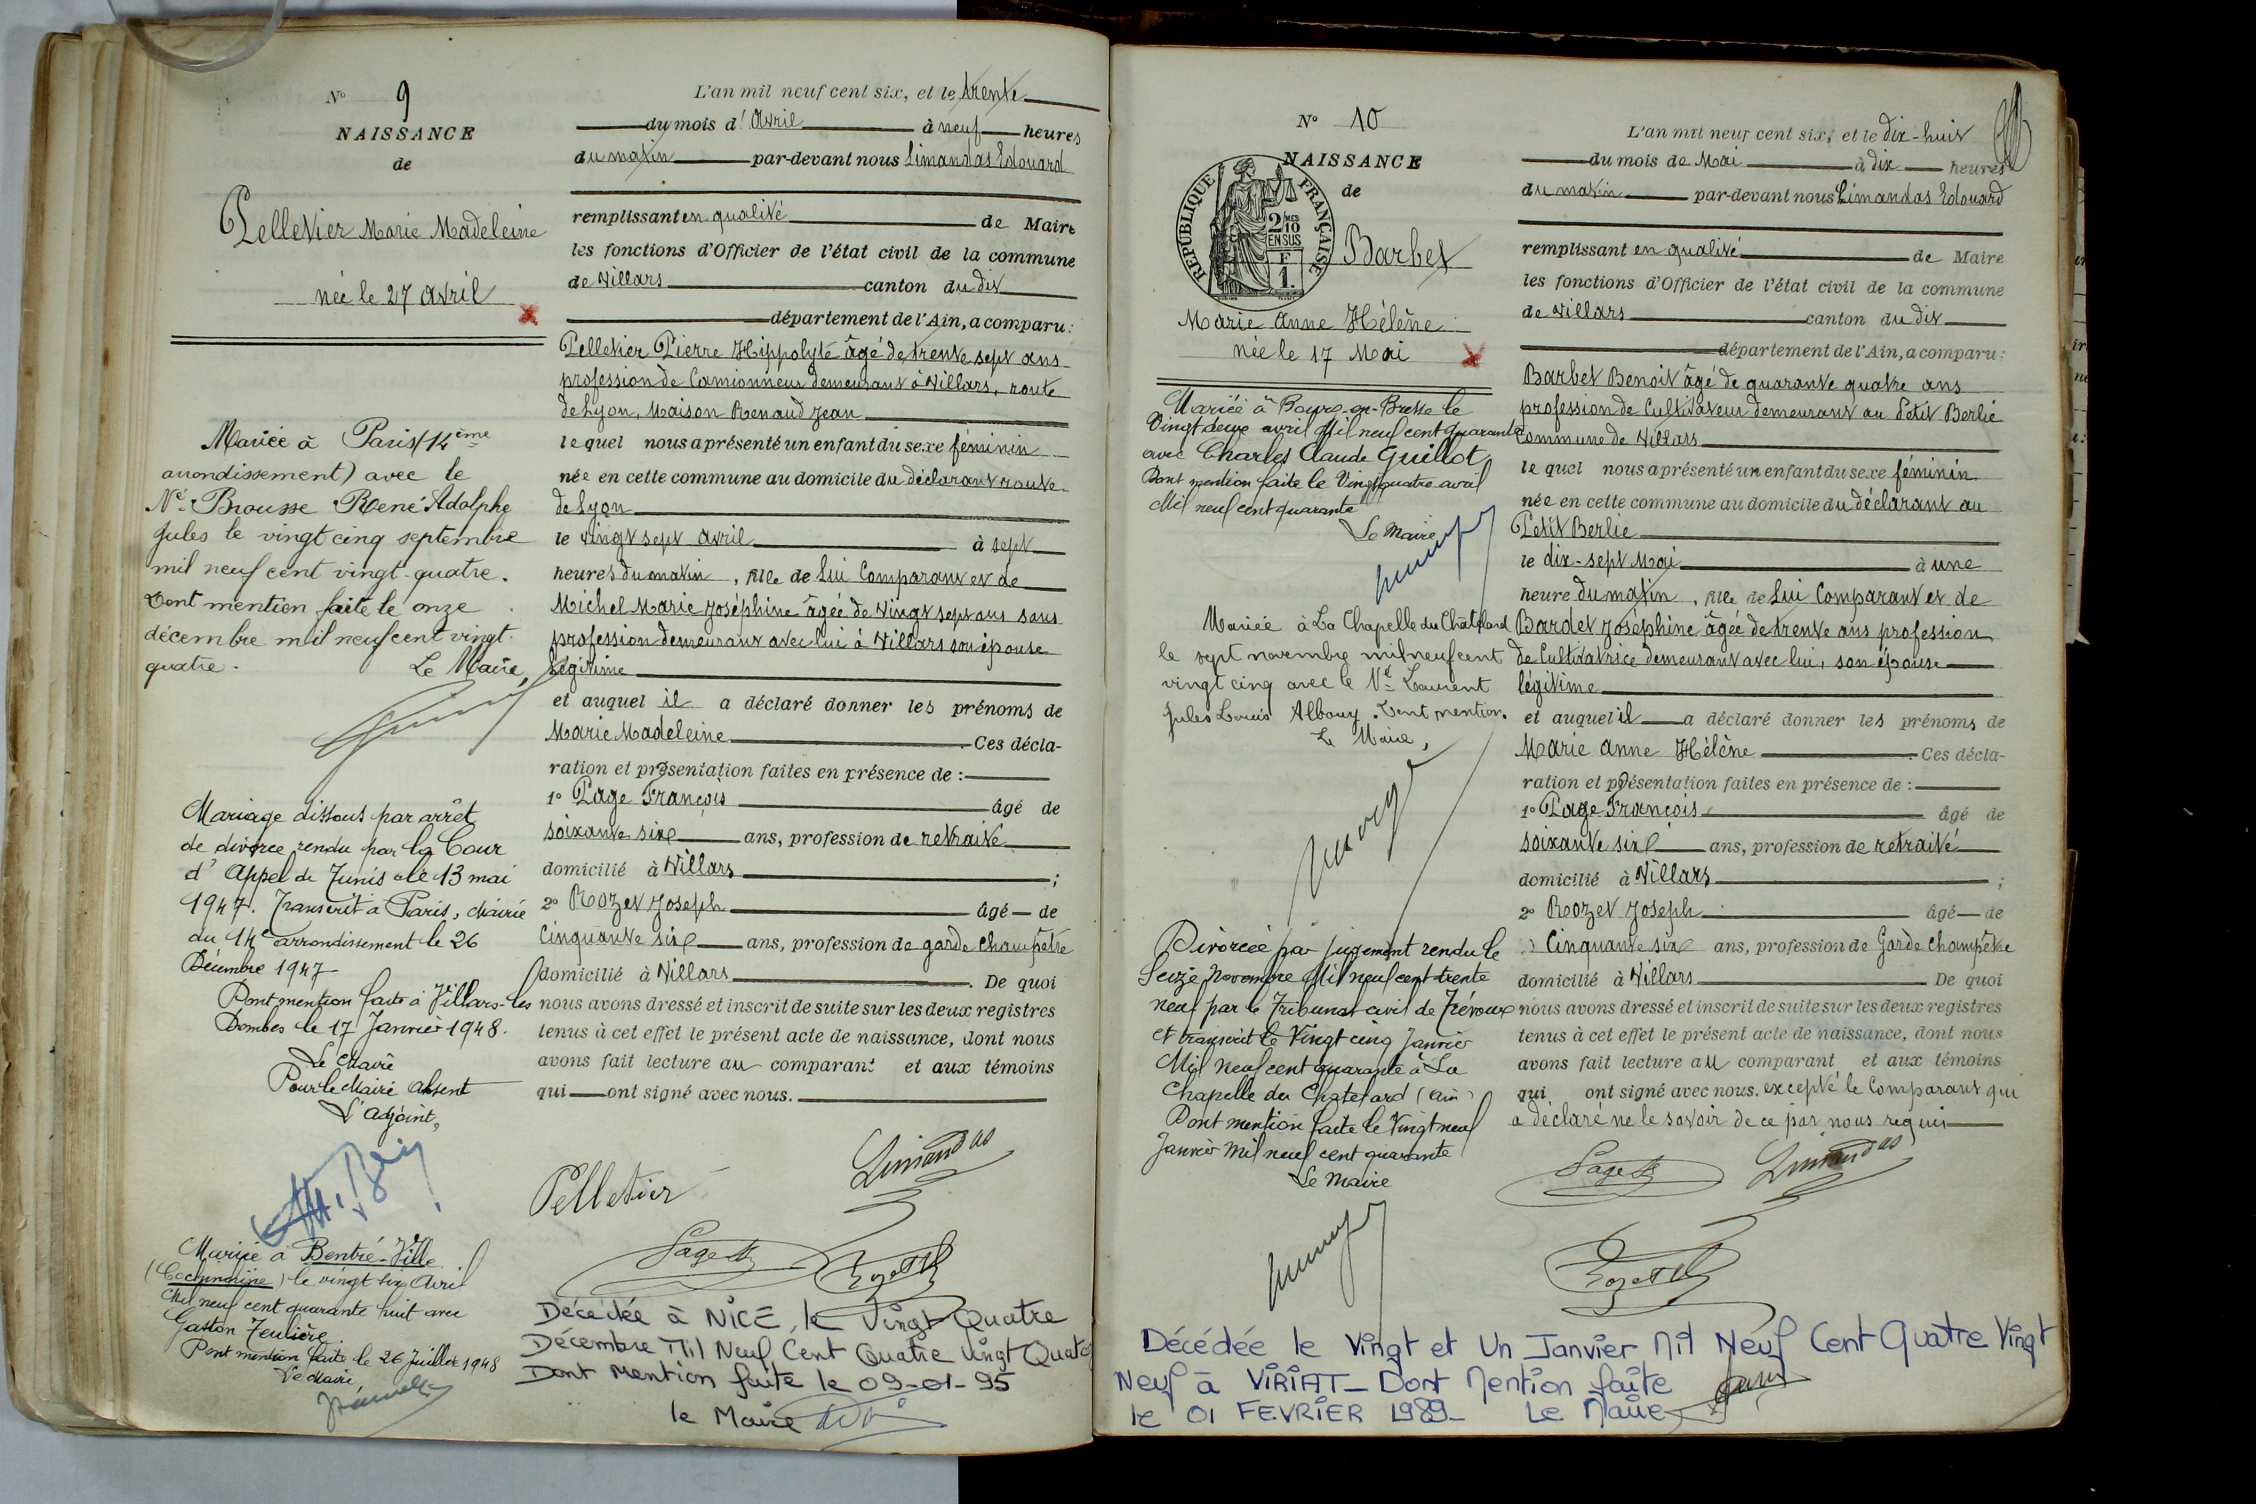 N° 9
NAISSANCE
de
Pelletier Marie Madeleine
née le 27 Avril
Mariée à Paris (14ème
arrondissement) avec le
Né Brousse René Adolphe
Jules le vingt cinq septembre
mil neuf cent vingt-quatre.
Dont mention faite le onze
décembre mil neuf cent vingt-
quatre. Le Maire,
Mariage dissous par arrêt
de divorce rendu par la Cour
d'Appel de Tunis le 13 mai
1947. Transcrit à Paris, Mairie
du 14e arrondissement le 26
Décembre 1947
Dont mention faite à Villars-les
Dombes le 17 Janvier 1948.
Le Maire
Pour le Maire Absent
L'adjoint,
Mariée à Bentré-Ville
(Cochinchine) le vingt six Avril
Mil neuf cent quarante huit avec
Gaston Teulière.
Dont mention faite le 26 Juillet 1948
Le Maire
L'an mil neuf cent six, et le trente
du mois d'Avril à neuf heures
du matin par-devant nous Limandas Edouard
remplissant en qualité de Maire
les fonctions d'Officier de l'état civil de la commune
de Villars canton du dit
département de l'Ain, a comparu:
Pelletier Pierre Hippolyte âgé de trente sept ans
profession de Camionneur demeurant à Villars, route
de Lyon, Maison Renaud Jean
lequel nous a présenté un enfant du sexe féminin
née en cette commune au domicile du déclarant route
de Lyon
le vingt sept Avril à sept
heures du matin, fille de Lui Comparant et de
Michel Marie Joséphine âgée de vingt sept ans sans
profession demeurant avec lui à Villars son épouse
légitime
et auquel il a déclaré donner les prénoms de
Marie Madeleine Ces décla-
ration et présentation faites en présence de :
1° Page François âgé de
soixante six ans, profession de retraité
domicilié à Villars ;
2° Rozet Joseph âgé de
Cinquante six ans, profession de garde champêtre
domicilié à Villars. De quoi
nous avons dressé et inscrit de suite sur les deux registres
tenus à cet effet le présent acte de naissance, dont nous
avons fait lecture au comparant et aux témoins
qui ont signé avec nous.
Pelletier Limandas
Page Rozet
Décédée à NICE, le Vingt Quatre
Décembre Mil Neuf Cent Quatre Vingt Quatorze
Dont Mention faite le 09-01-95
le Maire
N° 10
NAISSANCE
de
RÉPUBLIQUE FRANÇAISE
2/10MES
EN SUS
F
1.
Barbet
Marie Anne Hélène
née le 17 Mai
Mariée à Bourg-en-Bresse le
Vingt deux avril Mil neuf cent quarante
avec Charles Claude Guillot
Dont mention faite le Vingt quatre avril
Mil neuf cent quarante
Le Maire
Mariée à La Chapelle du Châtelard
le sept novembre mil neuf cent
vingt cinq avec le Né Laurent
Jules Louis Albouy. Dont mention.
Le Maire,
Divorcée par jugement rendu le
Seize Novembre Mil neuf cent trente
neuf par le Tribunal civil de Trévoux
et transcrit le Vingt cinq Janvier
Mil neuf cent quarante à La
Chapelle du Chatelard (Ain)
Dont mention faite le Vingt neuf
Janvier Mil neuf cent quarante
Le Maire
L'an mil neuf cent six, et le dix-huit
du mois de Mai à dix heures
du matin par-devant nous Limandas Edouard
remplissant en qualité de Maire
les fonctions d'Officier de l'état civil de la commune
de Villars canton du dit
département de l'Ain, a comparu:
Barbet Benoit âgé de quarante quatre ans
profession de Cultivateur demeurant au Petit Berlie
Commune de Villars
lequel nous a présenté un enfant du sexe féminin
née en cette commune au domicile du déclarant au
Petit Berlie
le dix-sept Mai à une
heure du matin, fille de Lui Comparant et de
Bardet Joséphine âgée de trente ans profession
de Cultivatrice demeurant avec lui, son épouse
légitime
et auquel il a déclaré donner les prénoms de
Marie Anne Hélène. Ces décla-
ration et présentation faites en présence de :
1° Page François âgé de
soixante six ans, profession de retraité
domicilié à Villars ;
2° Rozet Joseph âgé de
Cinquante six ans, profession de Garde champêtre
domicilié à Villars De quoi
nous avons dressé et inscrit de suite sur les deux registres
tenus à cet effet le présent acte de naissance, dont nous
avons fait lecture au comparant et aux témoins
qui ont signé avec nous. excepté le Comparant qui
a déclaré ne le savoir de ce par nous requis
Page Limandas
Rozet
Décédée le Vingt et Un Janvier Mil Neuf Cent Quatre Vingt
Neuf à VIRIAT - Dont Mention faite
le 01 FEVRIER 1989 - Le Maire